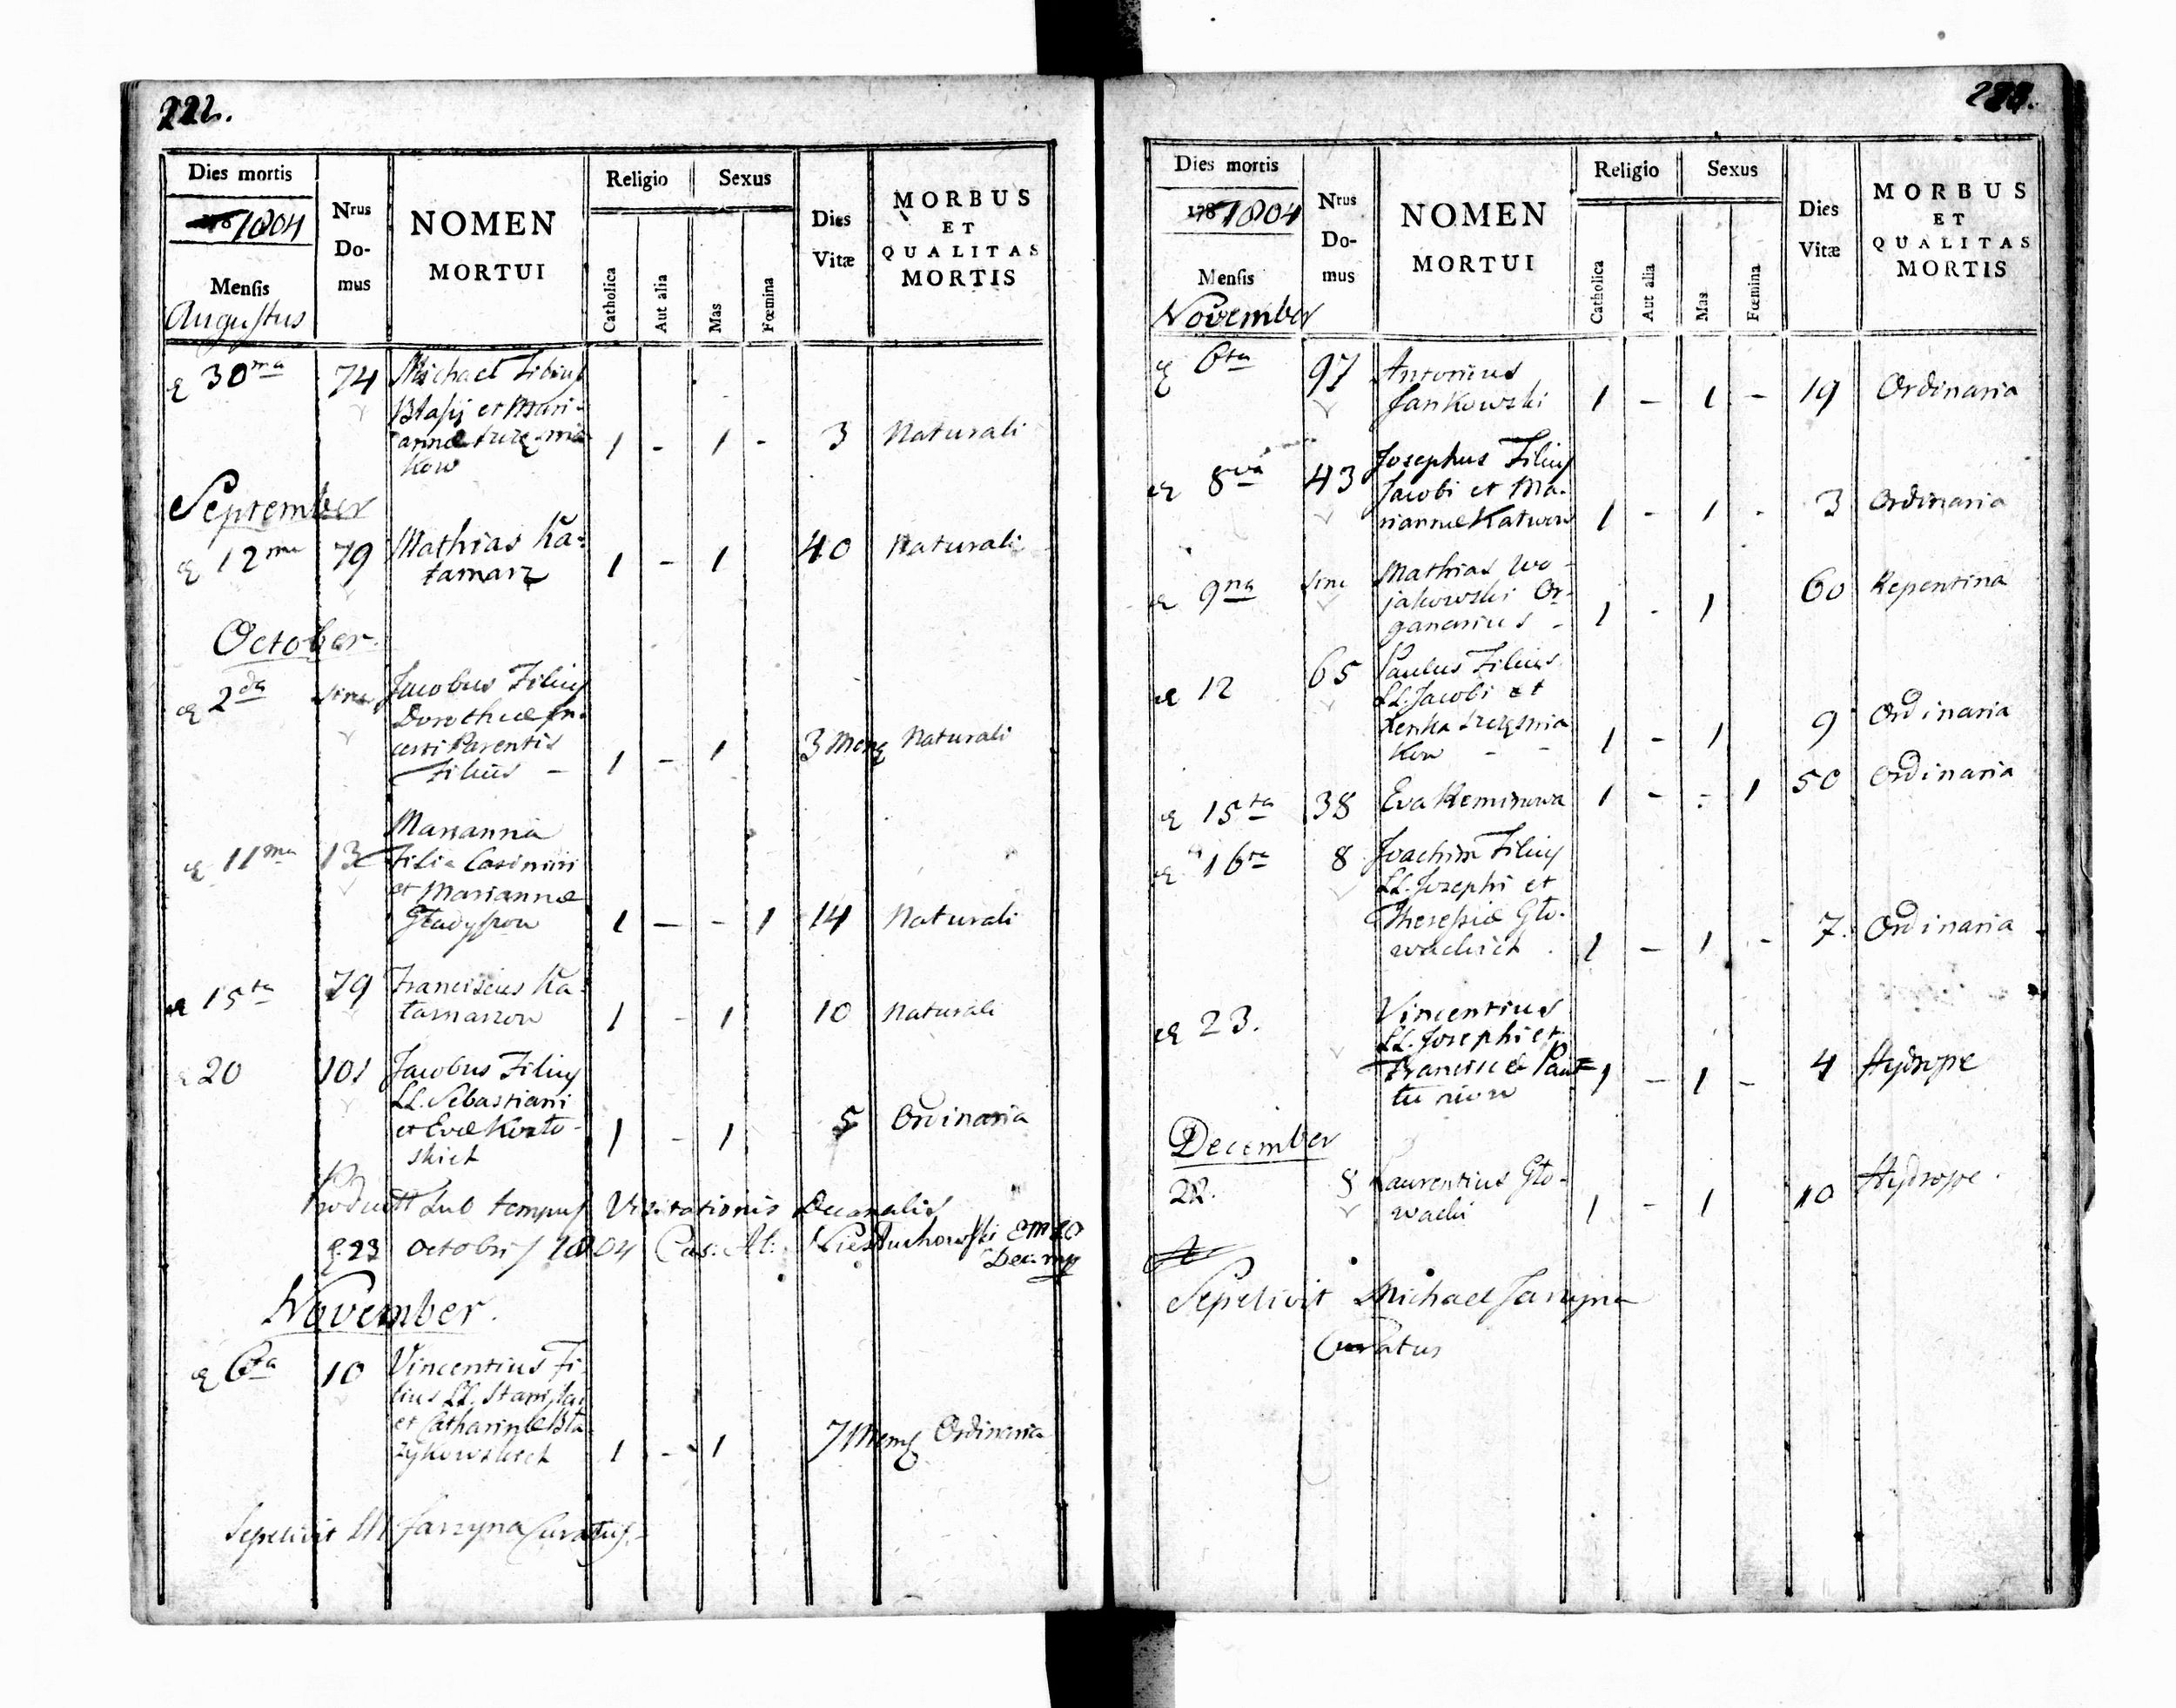 222.
Dies mortis
1804
Mensis
Augustus
Nrus
Do-
mus
NOMEN
MORTUI
Religio
Catholica
Aut alia
Sexus
Mas
Fœmina
Dies
Vitæ
MORBUS
ET
QUALITAS
MORTIS
30ma 74 Michael Filius
Błasij et Mari-
annæ Szczęśnia-
kow 1 - 1 - 3 Naturali
September
12ma 79 Mathias Ka-
tarnarz 1 - 1 40 Naturali
October
2da sine Jacobus Filius
Dorotheæ in-
certi Parentis
Filius - 1 - 1 3 Mens Naturali
11ma 13 Marianna
Filia Casimiri
et Mariannæ
Gładyszow 1 - - 1 14 Naturali
15ta 79 Franciscus Ka-
tarnarzow 1 - 1 10 Naturali
20 101 Jacobus Filius
LL. Sebastiani
et Evæ Kozło-
skich 1 - 1 5 Ordinaria
Sub tempus Visitationis Decanalis
23 Octobris 1804
November.
6ta 10 Vincentius Fi-
lius LL. Stanislai
et Catharinæ Bła
zykowskich 1 - - 1 7 Mens Ordinaria
Sepelivit M. Jarzyna Curatus.
Dies mortis
178 1804
Mensis
November
Nrus
Do-
mus
NOMEN
MORTUI
Religio
Catholica
Aut alia
Sexus
Mas
Fœmina
Dies
Vitæ
MORBUS
ET
QUALITAS
MORTIS
6ta 97 Antonius
Jankowski 1 - 1 - 19 Ordinaria
8va 43 Josephus Filius
Jacobi et Ma-
riannæ 1 - 1 - 3 Ordinaria
9na sine Mathias Wo-
jakowski Or-
ganarius - 1 - 1 60 Repentina
12 65 Paulus Filius
LL. Jacobi et
Szczęśnia
kow - - 1 - 1 9 Ordinaria
15ta 38 Eva 1 - - 1 50 Ordinaria
16ta 8 Joachim Filius
LL. Josephi et
Theresiæ Gło-
wackich 1 - 1 - 7. Ordinaria
23. Vincentius
LL. Josephi et
Franciscæ 1 - 1 - 4 Hydrope
December
22. 8 Laurentius Gło-
wacki 1 - 1 10 Hydrope.
Sepelivit Michael Jarzyna
Curatus